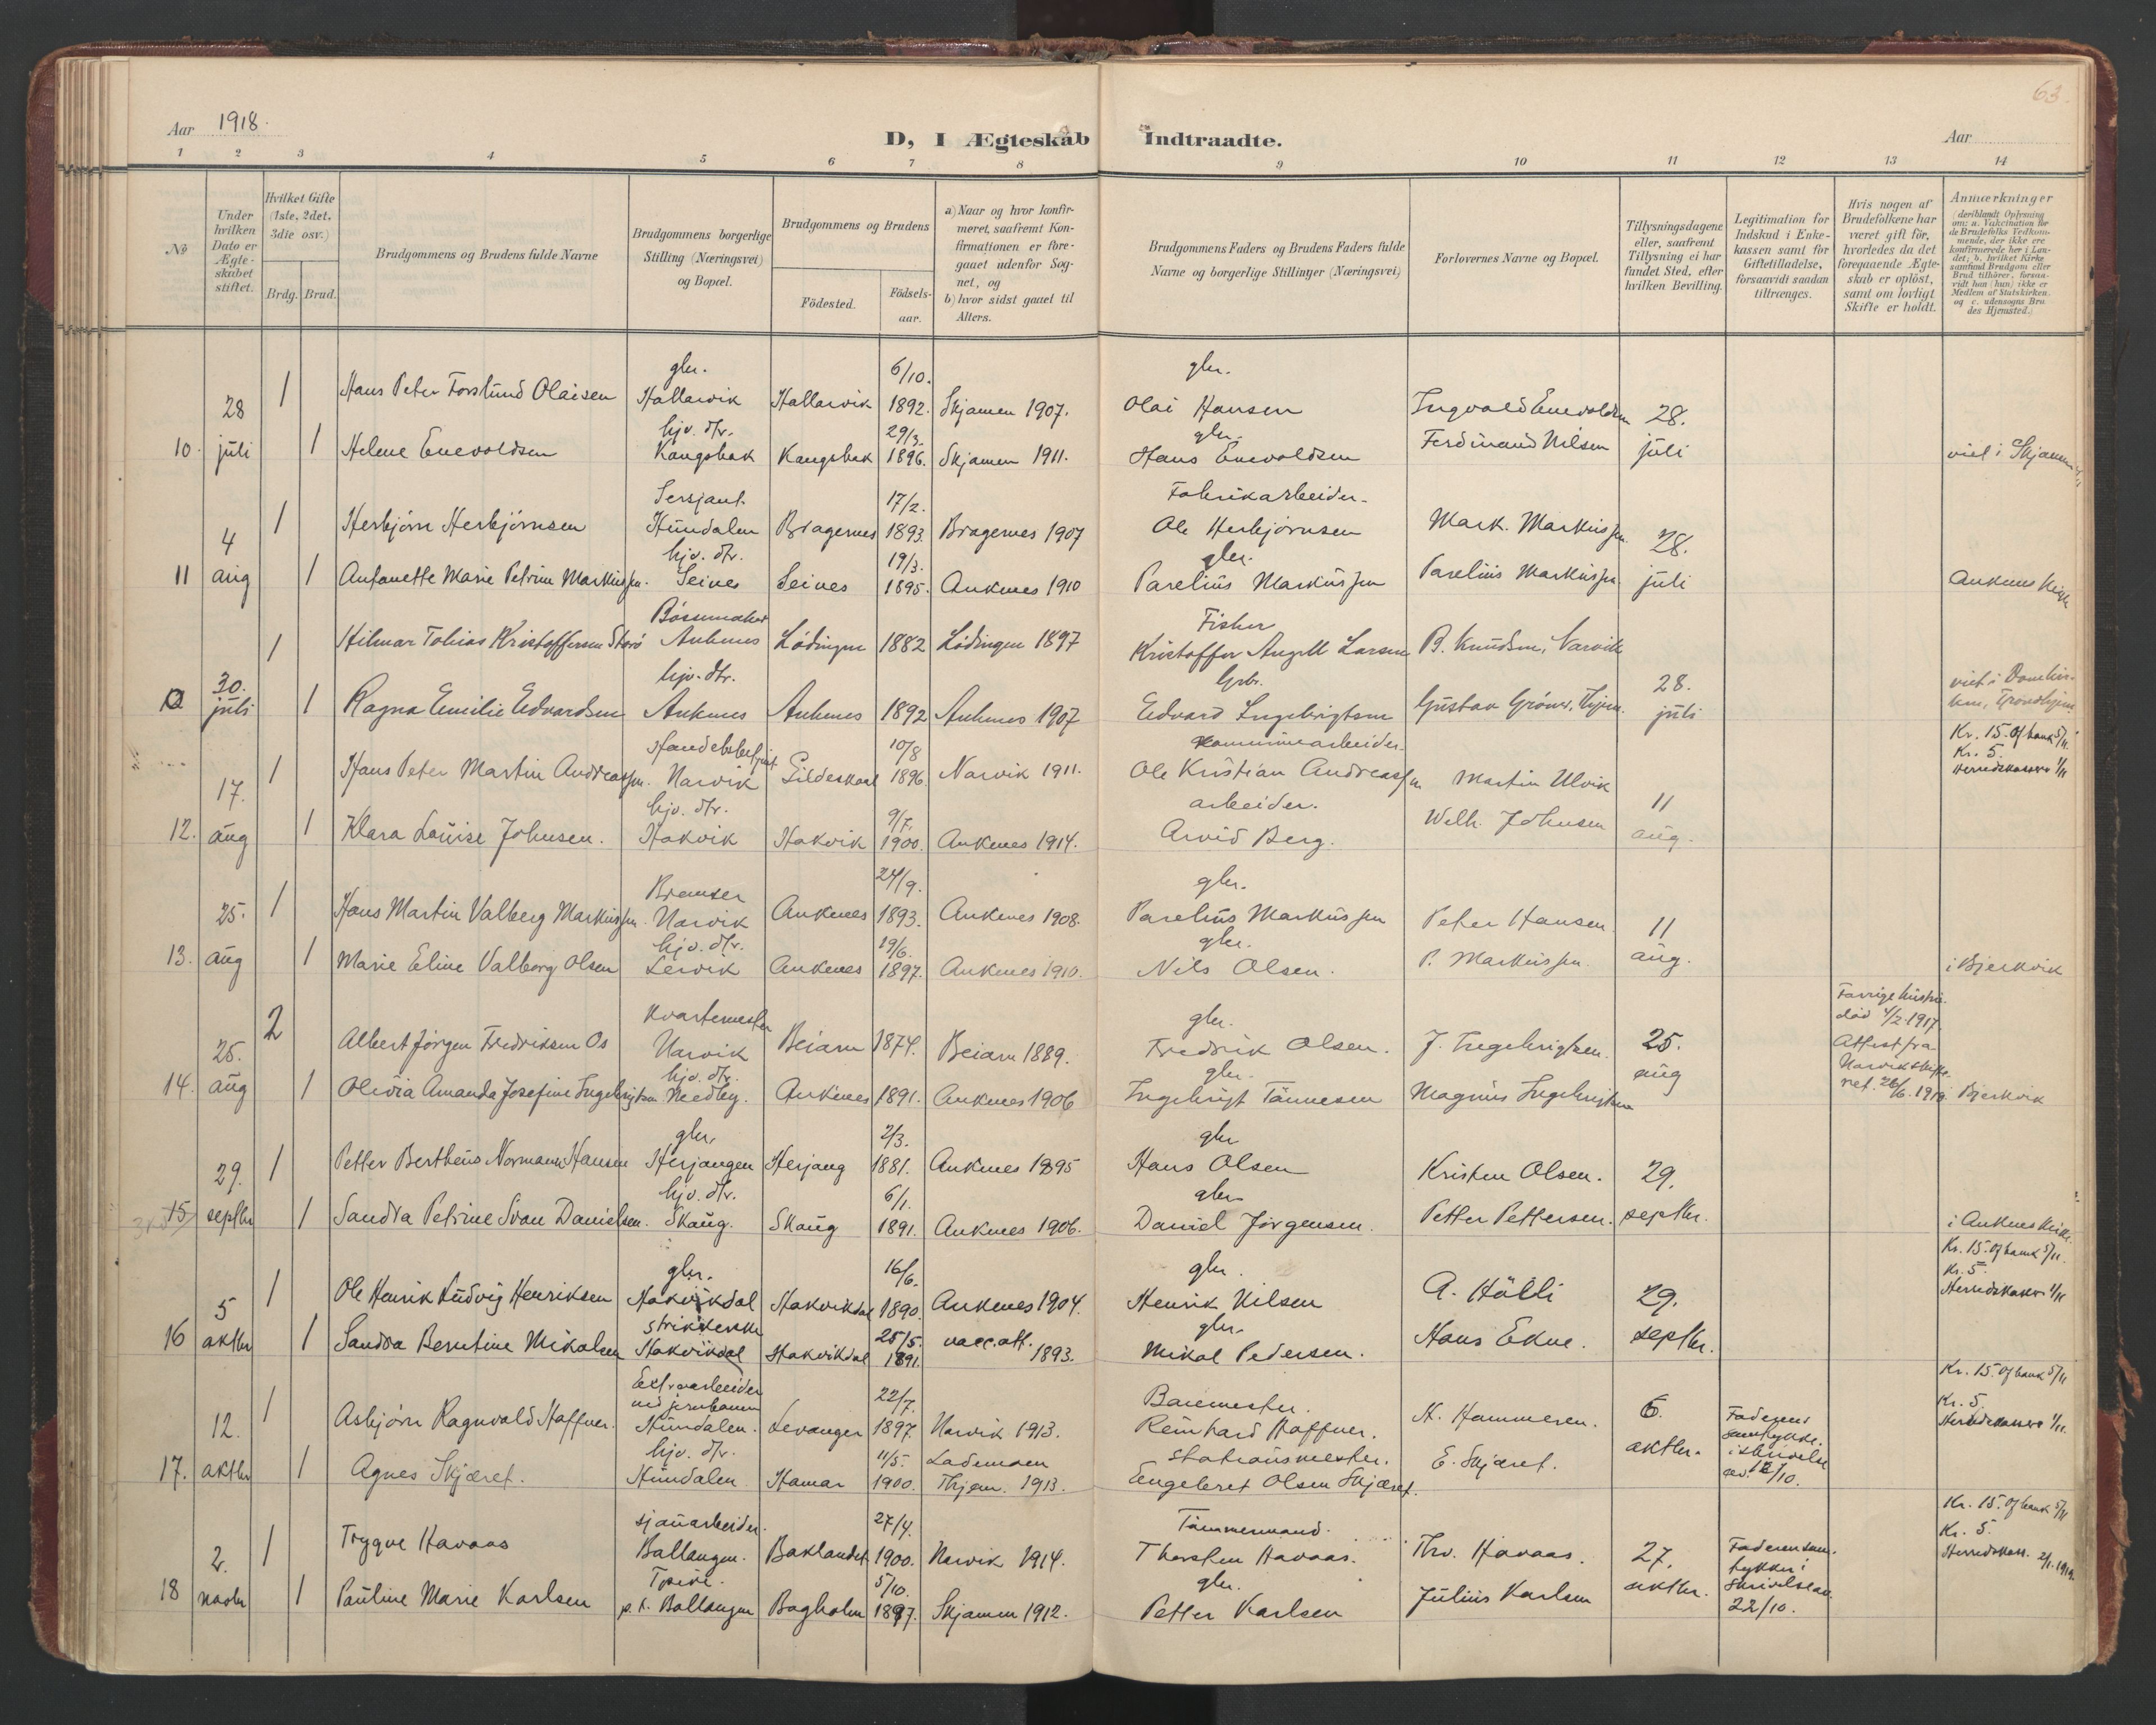 63.
Aar 1918.
D, I Ægteskab Indtraadte.
Aar
1 2 3 4 5 6 7 8 9 10 11 12 13 14
№
Under hvilken Dato er Ægteskabet stiftet.
Hvilket Gifte (1ste, 2det, 3die osv.)
Brdg. Brud.
Brudgommens og Brudens fulde Navne
Brudgommens borgerlige Stilling (Næringsvei) og Bopæl.
Brudgommens og Brudens
Fødested.
Fødselsaar.
a) Naar og hvor konfirmeret, saafremt Konfirmationen er foregaaet udenfor Sognet, og
b) hvor sidst gaaet til Alters.
Brudgommens Faders og Brudens Faders fulde Navne og borgerlige Stillinger (Næringsvei)
Forlovernes Navne og Bopæl.
Tillysningsdagene eller, saafremt Tillysning ei har fundet Sted, efter hvilken Bevilling.
Legitimation for Indskud i Enkekassen samt for Giftetilladelse, forsaavidt saadan tiltrænges.
Hvis nogen af Brudefolkene har været gift før, hvorledes da det foregaaende Ægteskab er opløst, samt om lovligt Skifte er holdt.
Anmærkninger
(deriblandt Oplysning om: a. Vakcination for de Brudefolks Vedkommende, der ikke ere konfirmerede her i Landet; b. hvilket Kirkesamfund Brudgom eller Brud tilhører, forsaavidt han (hun) ikke er Medlem af Statskirken. og c. udensogns Brudes Hjemsted.)
gbr. 6/10. gbr.
28 1 Hans Peter Forslund Olaisen Hallarvik Hallarvik 1892. Skjomen 1907. Olai Hansen Ingvald Enevoldsen 28.
hjv. dtr. 29/3. gbr.
10. juli 1 Helene Enevoldsen Kongsbak Kongsbak 1896. Skjomen 1911. Hans Enevoldsen Ferdinand Nilsen juli viet i Skjomen
Sersjant. 17/2. Fabrikarbeider.
4 1 Herbjørn Herbjørnsen Hundalen Bragernes 1893. Bragernes 1907 Ole Herbjørnsen Mark. Markussen. 28.
hjv. dtr. 19/3. gbr.
11 aug 1 Antonette Marie Petrine Markussen. Seines Seines 1895. Ankenes 1910 Parelius Markussen Parelius Markussen juli Ankenes Kirke
Bøssemaker Fisker
1 Hilmar Tobias Kristoffersen Storø Ankenes Lødingen 1882 Lødingen 1897 Kristoffer Angell Larsen B. Knudsen, Narvik
30. hjv. dtr. Gbr. 28.
juli 1 Ragna Emilie Edvardsen Ankenes Ankenes 1892 Ankenes 1907 Edvard Ingebrigtsen Gustav Grønv., Thjem. juli viet i Domkirken, Trondhjem.
Handelsbetjent 10/8 Kommunearbeider. Kr. 15. Of bank 5/11
17. 1 Hans Peter Martin Andreassen. Narvik Gildeskaal 1896. Narvik 1911. Ole Kristian Andreassen Martin Ulvik Kr. 5. Herredskasse 1/11
hjv. dtr. 9/7. arbeider. 11
12. aug 1 Klara Louise Johnsen. Hakvik Hakvik 1900. Ankenes 1914. Arvid Berg. Welh. Johnsen aug.
Bremser 24/9. gbr.
25. 1 Hans Martin Valberg Markussen. Narvik Ankenes 1893. Ankenes 1908. Parelius Markussen Peter Hansen. 11
hjv. dtr. 19/6. gbr.
13. aug 1 Marie Eline Valborg Olsen Leirvik Ankenes 1897. Ankenes 1910. Nils Olsen. P. Markussen. aug. i Bjerkvik
Kvartermester gbr. Forrige hustru død 4/2 1917.
25. 2 Albert Jørgen Fredriksen Os Narvik Beiarn 1874. Beiarn 1889. Fredrik Olsen. J. Ingebrigtsen. 25. Attest fra
hjv. dtr. gbr. Narvik skifteret. 26/6. 1918.
14. aug 1 Olevia Amanda Josefine Ingebrigtsen Medby. Ankenes 1891. Ankenes 1906 Ingebrigt Tønnesen Magnus Ingebrigtsen aug Bjerkvik
gbr. 2/3. gbr
29. 1 Petter Bertheus Normann Hansen Herjangen Herjang 1881. Ankenes 1895 Hans Olsen Kristen Olsen. 29.
hjv. dtr. 6/1. gbr
15 septbr 1 Sandra Petrine Svan Danielsen. Skaug. Skaug 1891. Ankenes 1906. Daniel Jørgensen. Petter Pettersen. septbr. i Ankenes Kirke.
gbr. 16/6. gbr. Kr. 15. Of bank 5/11.
5 1 Ole Henrik Ludvig Henriksen Hakvikdal Hakvikdal 1890. Ankenes 1904. Henrik Nilsen A. Hölli 29. Kr. 5. Herredskasse 1/11
strikkerske 25/5. gbr.
16 oktbr 1 Sandra Berntine Mikalsen Hakvikdal Hakvikdal 1891. vacc.att. 1893. Mikal Pedersen. Hans Ekne. septbr.
Extraarbeider ved jernbanen 22/7. Banemester. Kr. 15. Of bank 5/11
12. 1 Asbjørn Ragnvald Haffner. Hundalen. Levanger 1897. Narvik 1913. Reinhard Haffner. H. Hammeren. 6. Faderens samtykke i skrivelse av. 12/10. Kr. 5. Herredskasse 1/11.
hjv. dtr. 11/5. Lademoen stationsmester.
17. oktbr 1 Agnes Skjæret. Hundalen Hamar 1900. Thjem. 1913. Engebret Olsen Skjæret. E. Skjæret. oktbr.
sjauarbeider. 27/4. Tømmermand. Kr. 15. Of bank 5/11
2. 1 Trygve Havaas Ballangen. Baklandet 1900. Narvik 1914. Thorsten Havaas. Thv. Havaas. 27. Faderens samtykke i skrivelse av 22/10. Kr. 5. Herredskass. 2/1. 1919.
5/10. gbr.
18 novbr 1 Pauline Marie Karlsen p.t. Ballangen Bogholm 1897. Skjomen 1912. Petter Karlsen Julius Karlsen oktbr.